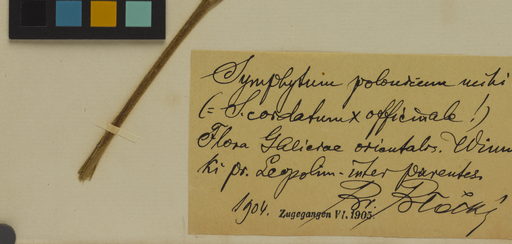 Symphytum polonicum mihi
(= S. cordatum x officinale !)
Flora Galiciae orientalis. Winni
ki pr. Leopolim - inter parentes
Br. Błocki
1904. Zugegangen VI. 1905